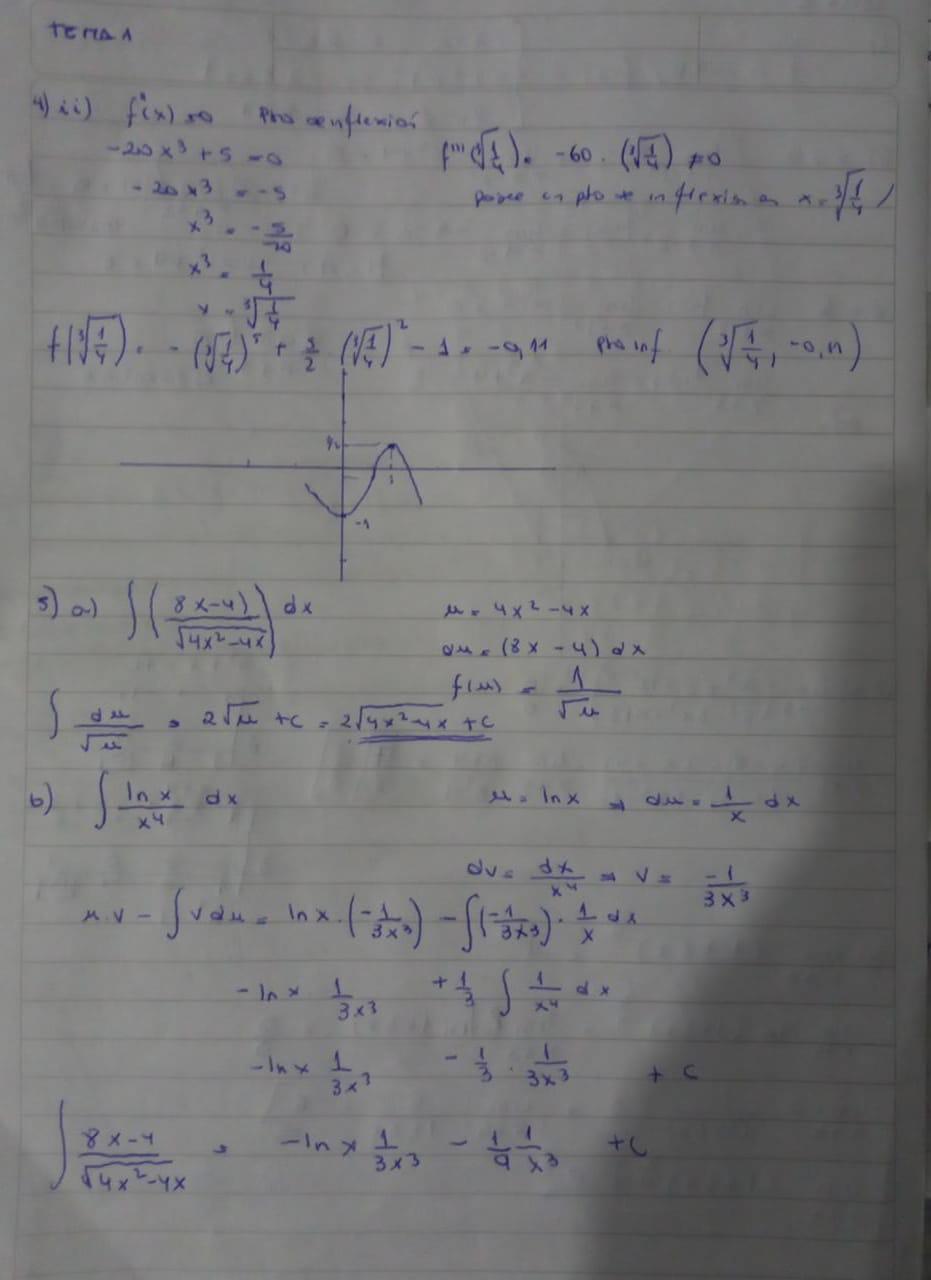 TEMA 1
4) ii) f''(x) = 0 pto de inflexión
-20x³ + 5 = 0 f'''(∛(1/4)) = -60 · (∛(1/4)) ≠ 0
-20x³ = -5 posee un pto de inflexión en x = ∛(1/4)
x³ = -5/-20
x³ = 1/4
x = ∛(1/4)
f(∛(1/4)) = -(∛(1/4))⁵ + 5/2 (∛(1/4))² - 1 = -0,11 pto inf (∛(1/4), -0,11)
1/2
1
-1
5) a) ∫ ((8x-4)/√(4x²-4x)) dx u = 4x²-4x
du = (8x-4) dx
f(u) = 1/√u
∫ du/√u = 2√u + c = 2√(4x²-4x) + c
b) ∫ ln x/x⁴ dx u = ln x ⇒ du = 1/x dx
dv = dx/x⁴ ⇒ v = -1/3x³
u.v - ∫ v du = ln x · (-1/3x³) - ∫ (-1/3x³) · 1/x dx
-ln x 1/3x³ + 1/3 ∫ 1/x⁴ dx
-ln x 1/3x³ - 1/3 · 1/3x³ + C
∫ (8x-4)/√(4x²-4x) = -ln x 1/3x³ - 1/9 1/x³ + C